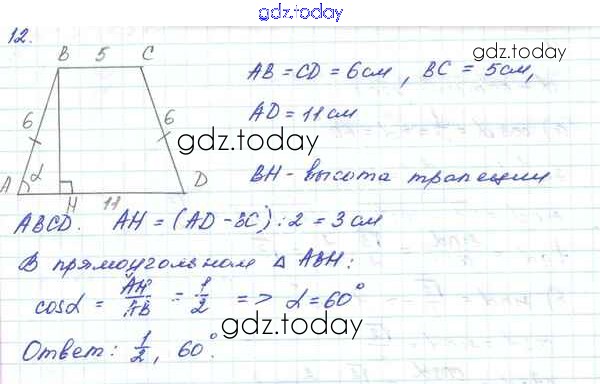 gdz.today
12.
B 5 C
gdz.today
AB = CD = 6см, BC = 5см,
6 6
AD = 11см
gdz.today
A α H 11 D
BH - высота трапеции
ABCD. AH = (AD - BC) : 2 = 3 см
В прямоугольном Δ ABH:
cosα = AH/AB = 1/2 => α = 60°
gdz.today
Ответ: 1/2, 60°.